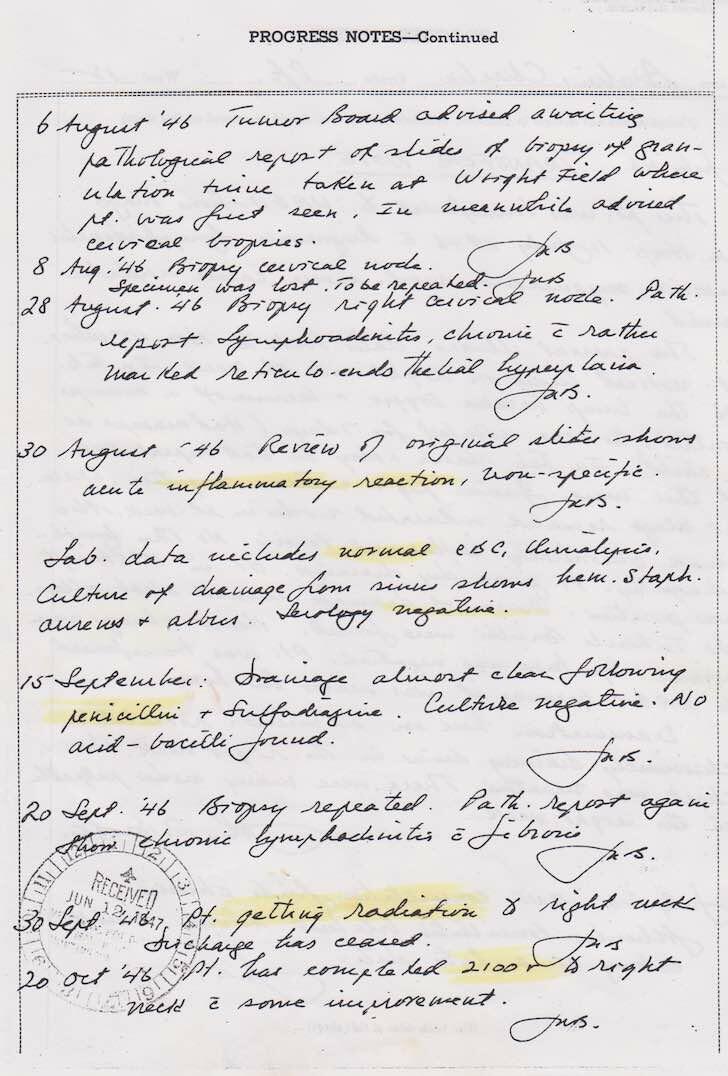 PROGRESS NOTES—Continued
6 August '46 Tumor Board advised awaiting
pathological report of slides of biopsy of gran-
ulation tissue taken at Wright Field where
pt. was first seen. In meanwhile advised
cervical biopsies.
8 Aug. '46 Biopsy cervical node.
Specimen was lost. To be repeated.
28 August. '46 Biopsy right cervical node. Path.
report. Lymphoadenitis, chronic c̄ rather
marked reticulo-endothelial hyperplasia.
30 August '46 Review of original slides shows
acute inflammatory reaction, non-specific.
Lab. data includes normal CBC, Urinalysis.
Culture of drainage from sinus shows hem. Staph.
aureus + albus. Serology negative.
15 September: Drainage almost clear following
penicillin + Sulfadiazine. Culture negative. NO
acid-bacilli found.
20 Sept. '46 Biopsy repeated. Path. report again
show chronic lymphadinitis c̄ fibrosis
RECEIVED
JUN 12 1947
30 Sept '46. Pt. getting radiation right neck
Discharge has ceased.
20 Oct '46 Pt. has completed 2100 r right
neck c̄ some improvement.